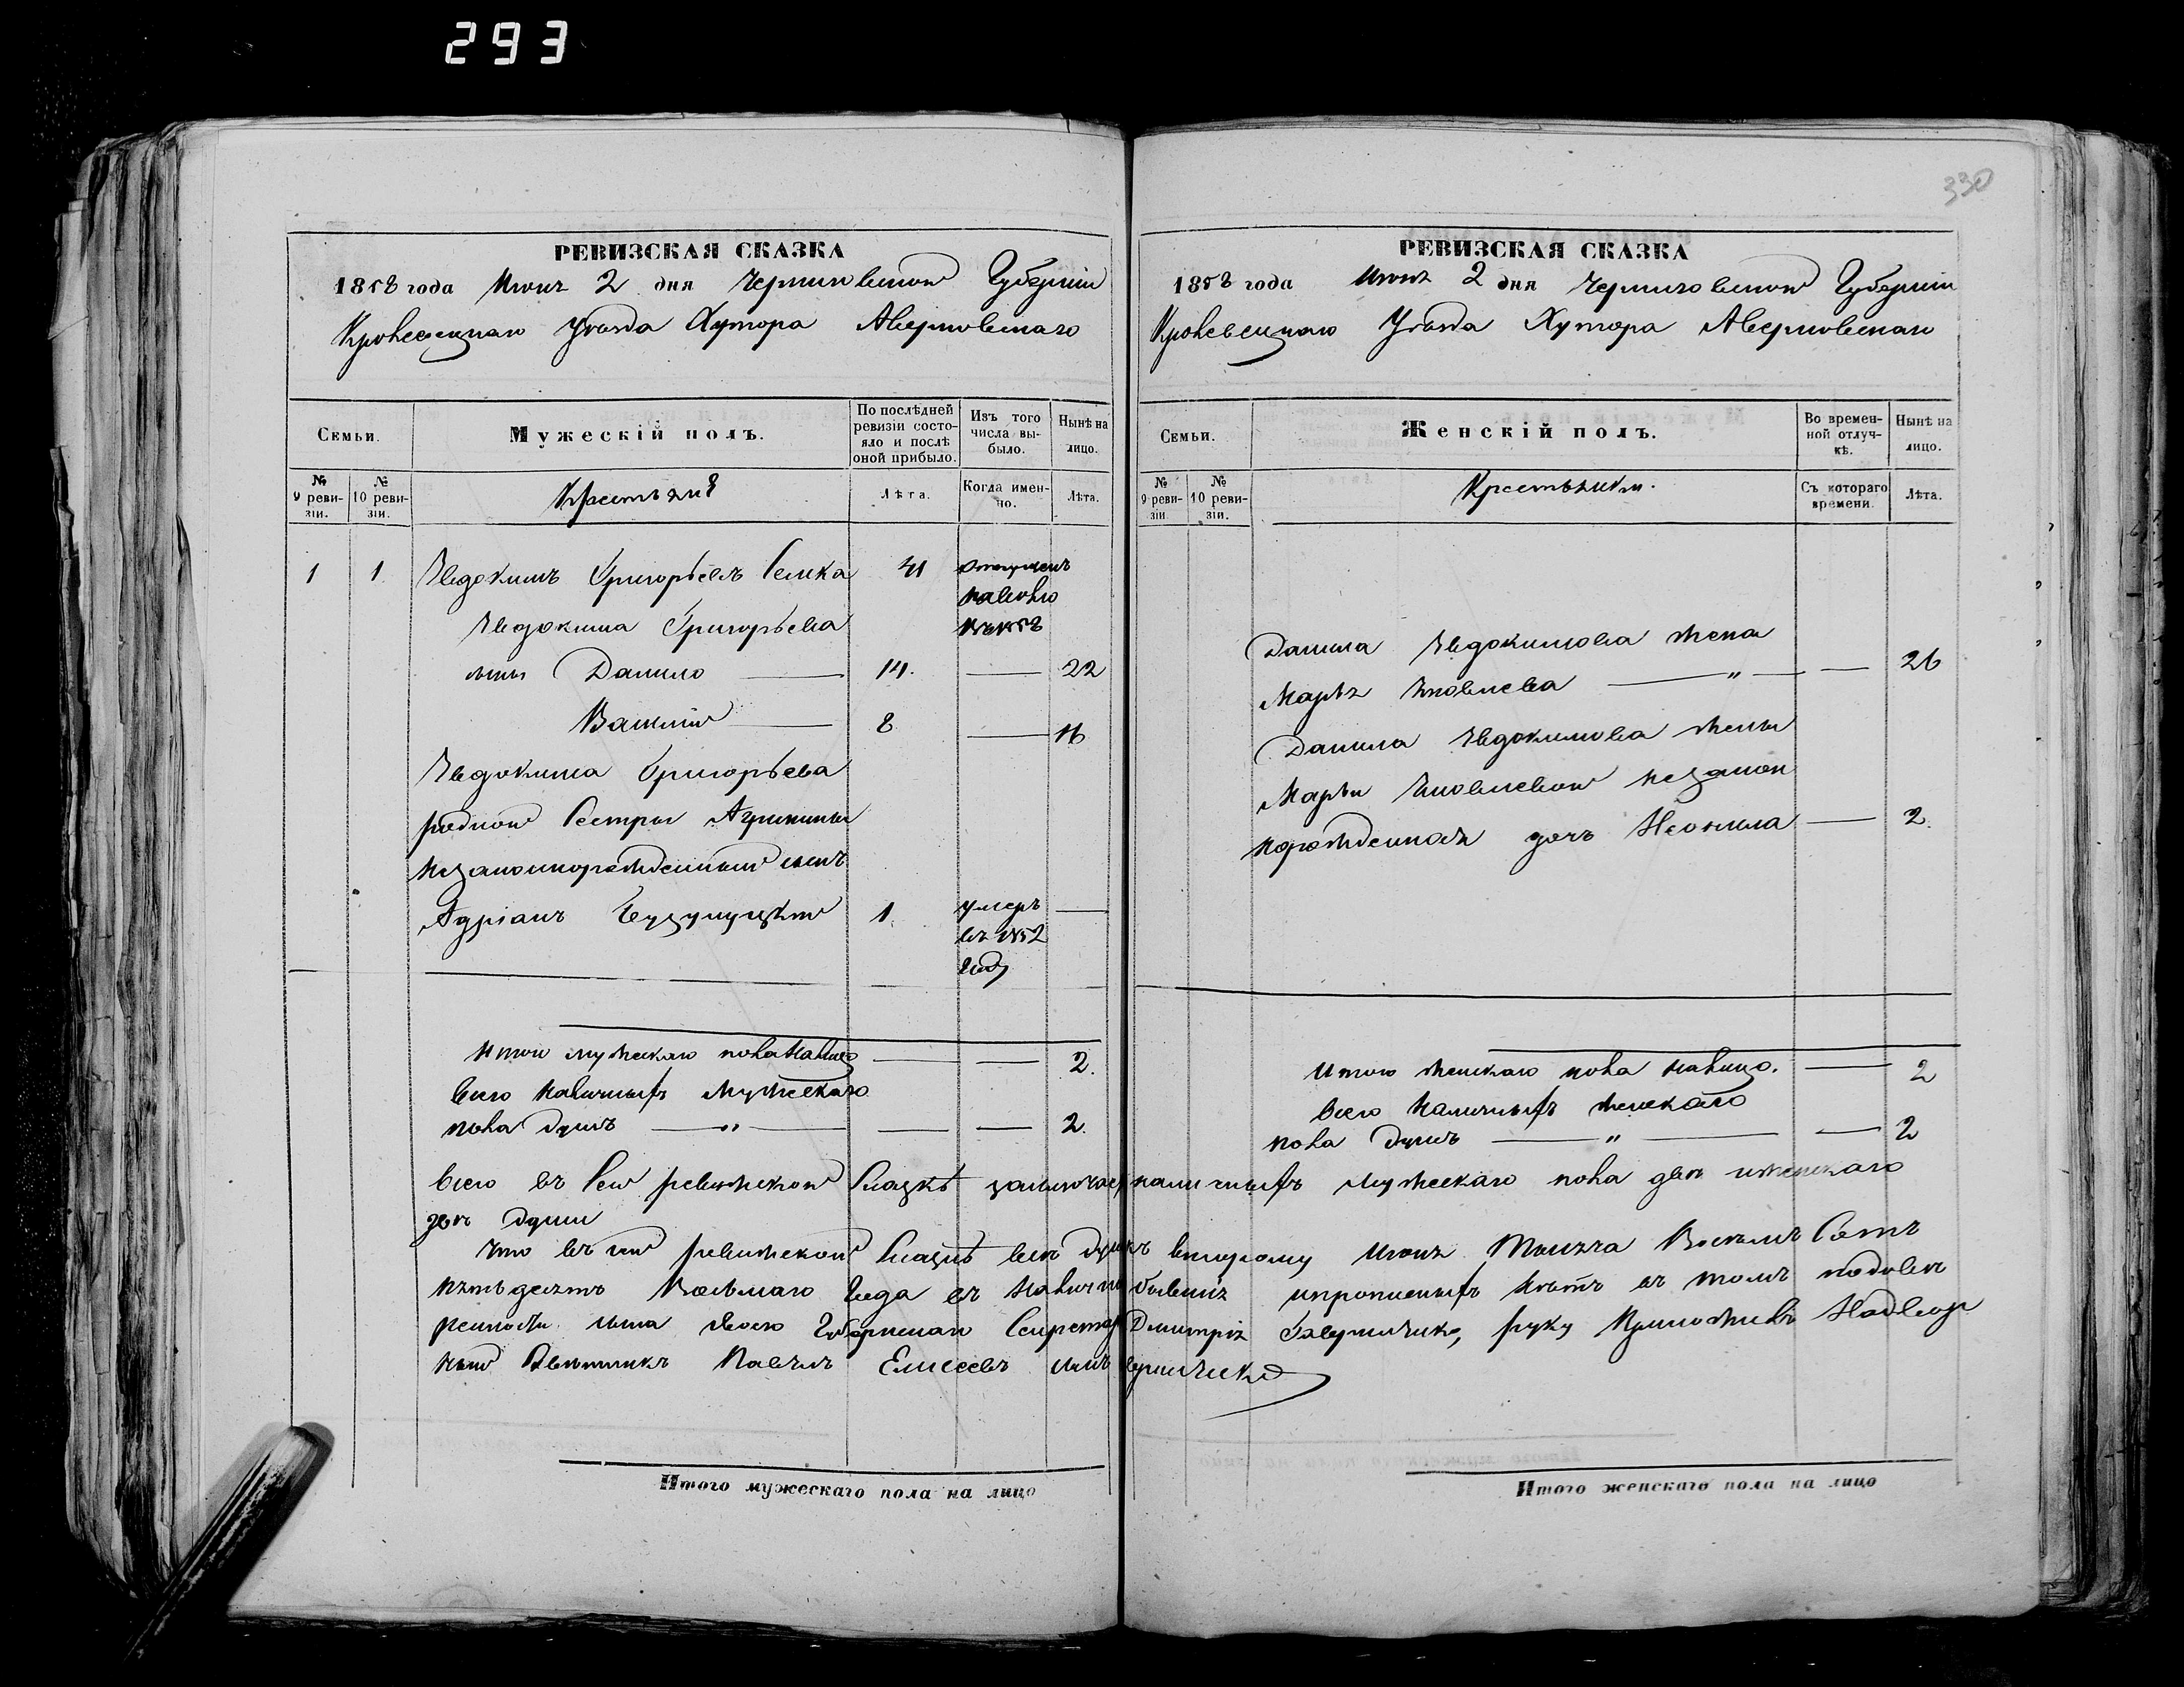 293
330
РЕВИЗСКАЯ СКАЗКА
1858 года Июня 2 дня Черниговской Губерніи
Кролевецкаго Уѣзда Хутора
Семьи.
Мужескій полъ.
По послѣдней ревизіи состояло и послѣ оной прибыло.
Изъ того числа выбыло.
Нынѣ на лицо.
№ 9 ревизіи.
№ 10 ревизіи.
Крестьяне
Лѣта.
Когда именно.
Лѣта.
1 1 Евдокимъ Григорьевъ 41 отпущенъ
на волю
Евдокима Григорьева
сыны Данило — 14. — 22
Василій — 8 — 16
Евдокима Григорьева
родной Сестры Агрипины
незаконнорожденный сынъ
Адріанъ 1. умеръ —
въ 1852
году
Итого мужескаго пола налицо — — 2.
Всего наличныхъ мужескаго
пола душъ — " — — — 2.
РЕВИЗСКАЯ СКАЗКА
1858 года Июня 2 дня Черниговской Губерніи
Кролевецкаго Уѣзда Хутора
Семьи.
Женскій полъ.
Во временной отлучкѣ.
Нынѣ на лицо.
№ 9 ревизіи
№ 10 ревизіи.
Крестьянки.
Съ котораго времени.
Лѣта.
Данила Евдокимова жена
Марья Яковлева — " — — 26
Данила Евдокимова жены
Марьи Яковлевой незакон
норожденная дочь Неонила — 2.
Итого женскаго пола налицо. — 2
Всего наличныхъ женскаго
пола душъ — " — — 2
Всего въ сей ревизской Сказкѣ заключает наличныхъ мужескаго пола двѣ и женскаго
двѣ души
Что въ сей ревизской Сказкѣ всѣ душѣ второму Июня Тысяча Восемь Сотъ
пятьдесятъ Восьмаго Года въ налично бывшія и прописныхъ нѣтъ въ томъ подовѣ
ренности сына своего Губернскаго Секретаря Дмитрія руку приложилъ Надвор
ный Совѣтникъ Павелъ Елисеевъ сынъ
Итого мужескаго пола на лицо
Итого женскаго пола на лицо